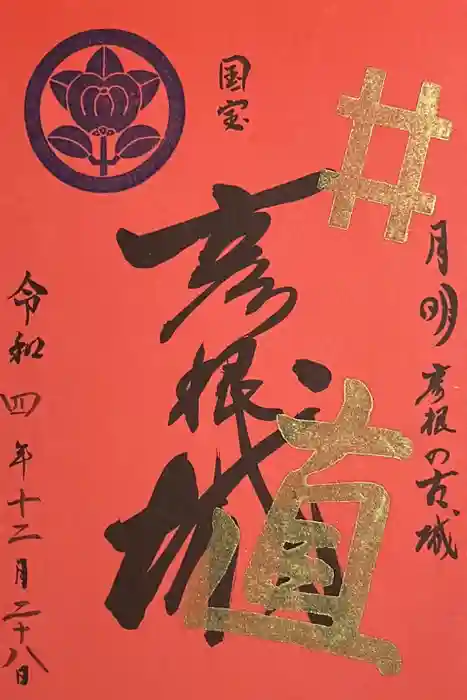 国宝
彦根城
井
直
月明彦根の古城
令和四年十二月二十八日